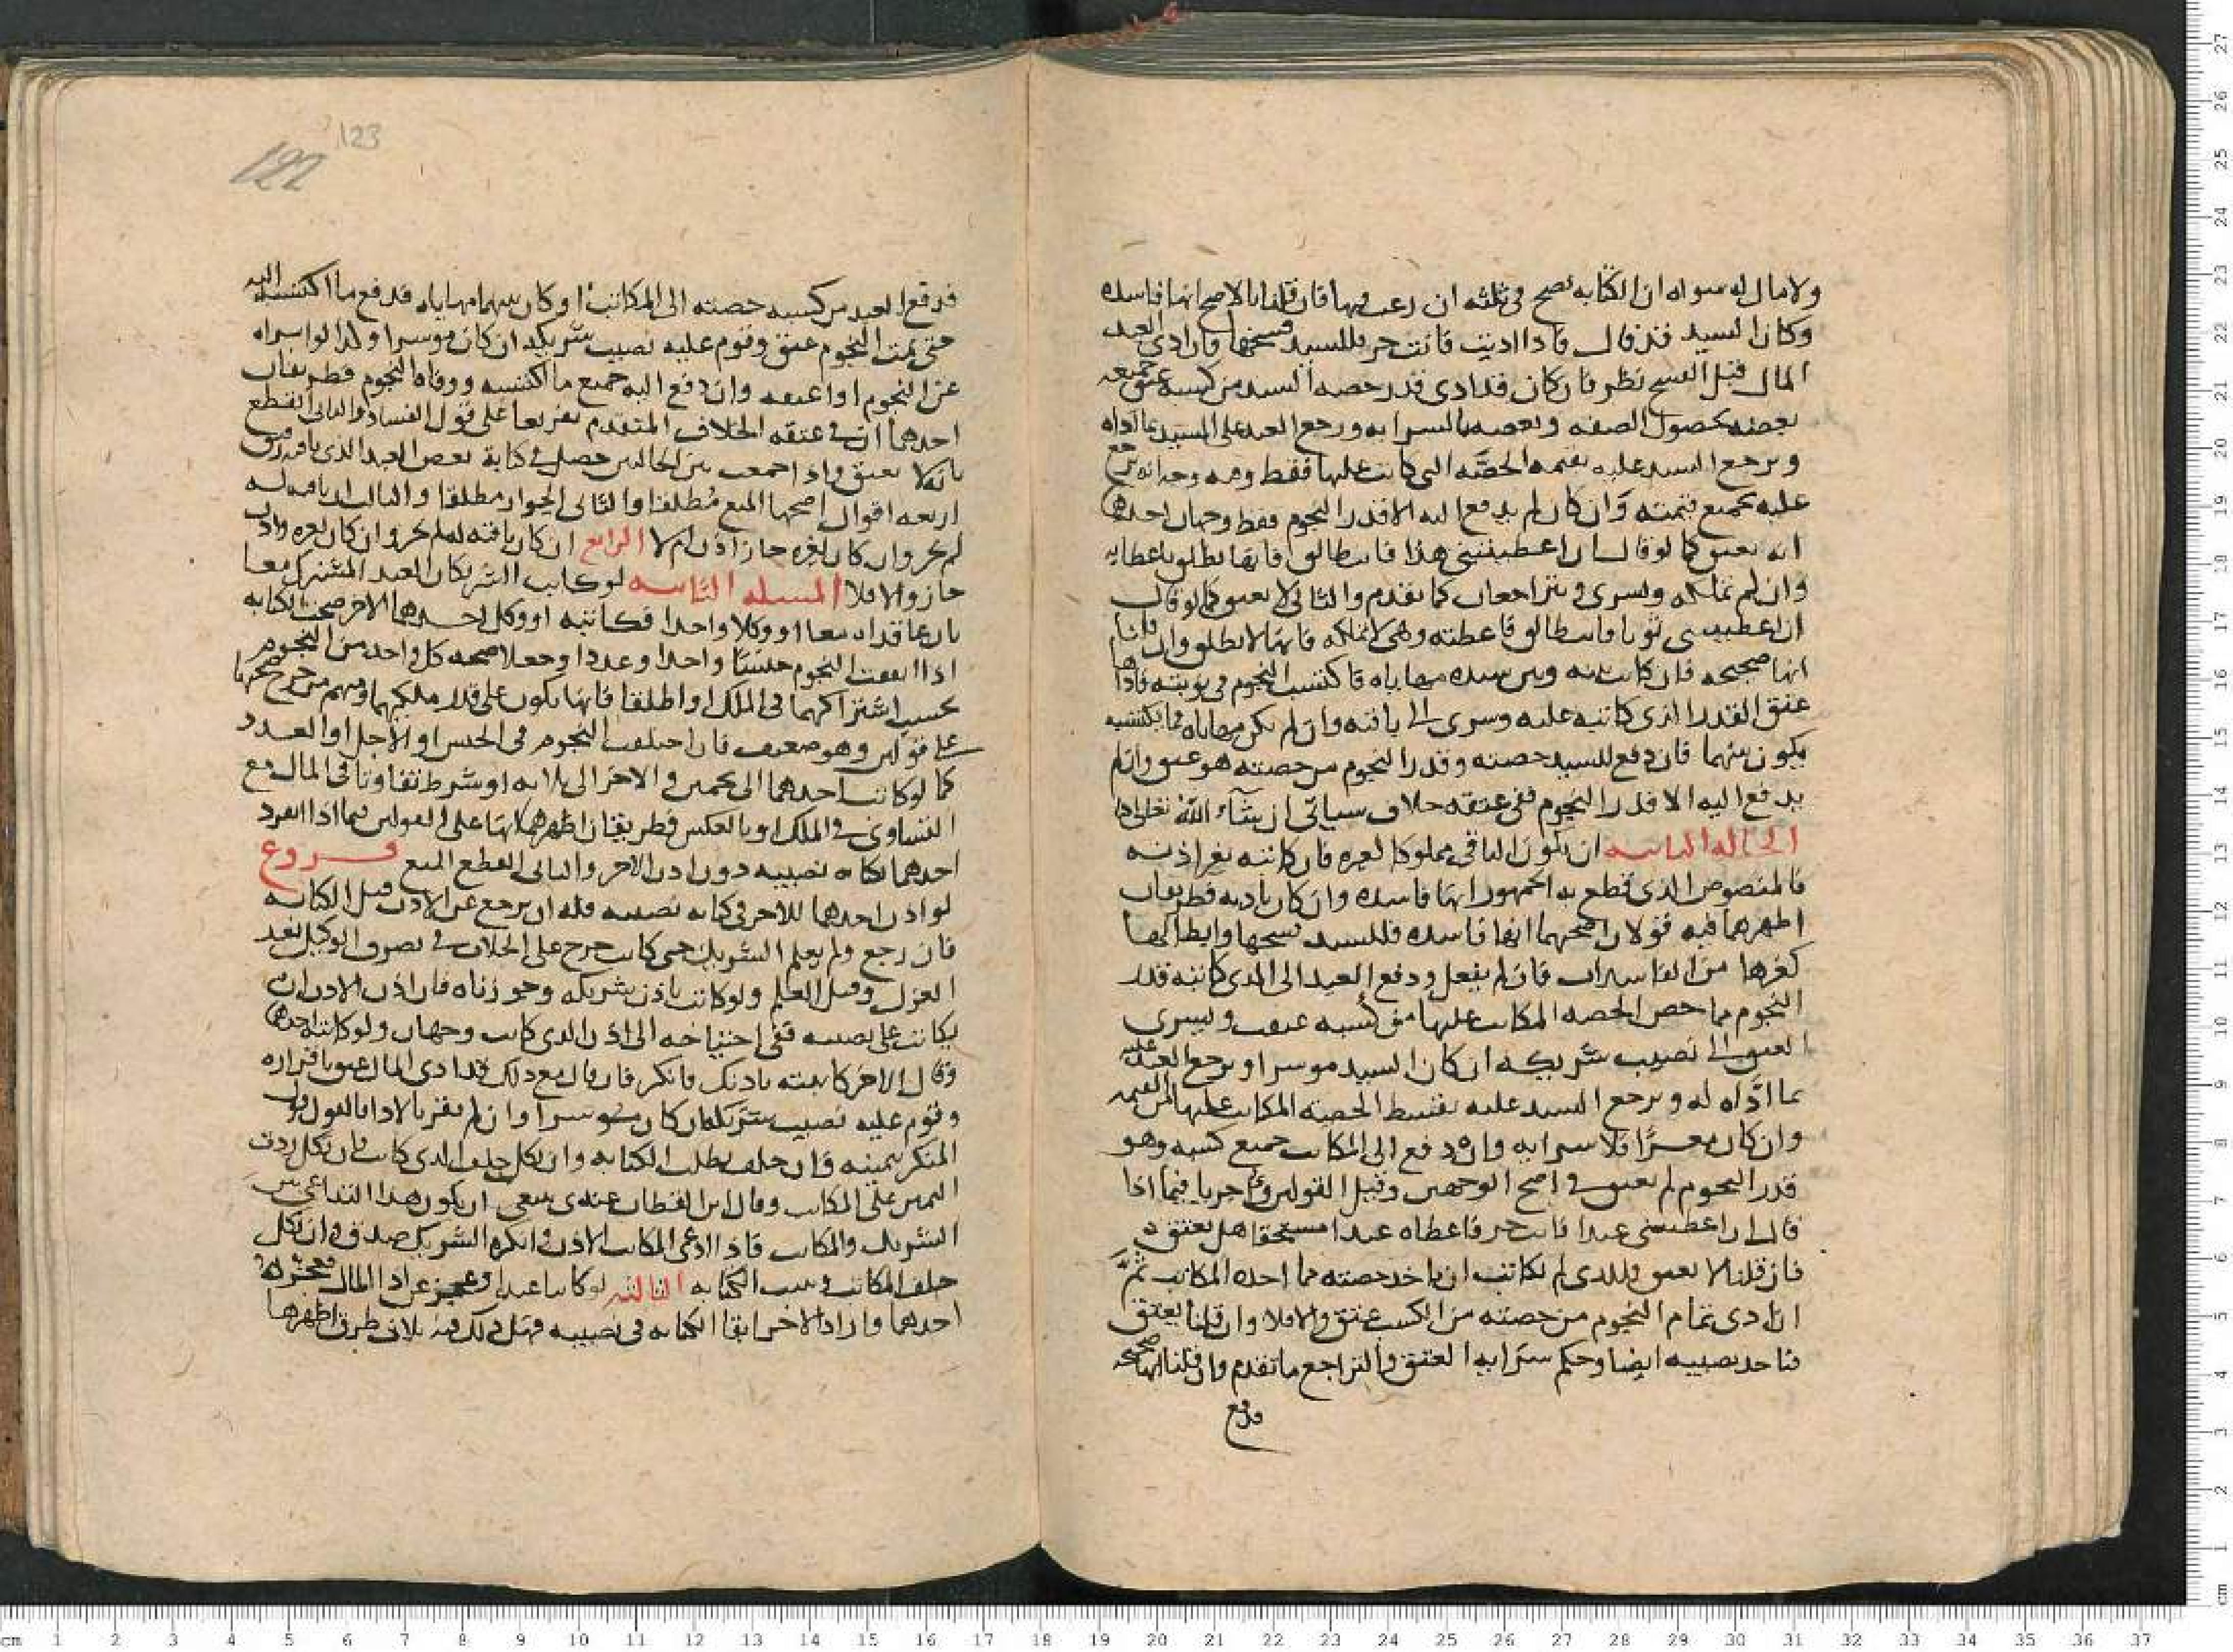 ولا مال له سواه ان الكتابه تصح في ثلثه ان رغب فيها فان قلنا بالاصح انها فاسده
وكان السيد قد قال فاذا اديت فانت حر فللسيد فسخها فان ادى العبد
المال قبل الفسخ نظر فان كان قد ادى قدر حصه السيد من كسبه عتق جميعه
بعضه بحصول الصفه وبعضه بالسرايه ورجع العبد على السيد بما اداه
ويرجع السيد عليه بقيمه الحصه التي كاتب عليها فقط وجه انه يرجع
عليه بجميع قيمته وان كان لم يدفع اليه الا قدر النجوم فقط وجهان احدهما
انه يعتق كما لو قال ان اعطيتني هذا فانت طالق فانها تطلق باعطايه
وان لم تملكه ويسري ويتراجعان كما تقدم والثاني لا يعتق كما لو قال
ان اعطيتني ثوبا فانت طالق فاعطته وهي لا تملكه فانها لا تطلق وان قلنا
انها صحيحه فان كان بينه وبين سيده مهاياه فاكتسب النجوم في نوبته فاداها
عتق القدر الذي كاتبه عليه وسرى الى باقيه وان لم تكن مهاياه فما يكتسبه
يكون بينهما فان دفع للسيد حصته وقدر النجوم من حصته هو عتق وان لم
يدفع اليه الا قدر النجوم ففي عتقه خلاف سياتي ان شاء الله تعالى
الحاله الثانيه ان يكون الباقي مملوكا لغيره فان كاتبه بغير اذنه
فالمنصوص الذي قطع به الجمهور انها فاسده وان كان باذنه فطريقان
اظهرهما فيه قولان اصحهما انها فاسده فللسيد فسخها وابطالها
كغيرها من الفاسدات فان لم يفعل ودفع العبد الى الذي كاتبه قدر
النجوم مما خص الحصه المكاتب عليها من كسبه عتقت ويسري
العتق الى نصيب شريكه ان كان السيد موسرا ويرجع العبد عليه
بما اداه له ويرجع السيد عليه بقسط الحصه المكاتب عليها من القيمه
وان كان معسرا فلا سرايه وان دفع الى المكاتب جميع كسبه وهو
قدر النجوم لم يعتق في اصح الوجهين وقيل القولين واجريا فيما اذا
قال ان اعطيتني عبدا فانت حر فاعطاه عبدا مستحقا هل يعتق
فان قلنا لا يعتق فللذي لم يكاتب ان ياخذ حصته مما اخذه المكاتب ثم
ان ادى تمام النجوم من حصته من الكسب عتق والا فلا وان قلنا يعتق
فياخذ نصيبه ايضا وحكم سرايه العتق والتراجع ما تقدم وان قلنا انها صحيحه
فدفع
123
122
فدفع العبد من كسبه حصته الى المكاتب او كان بينهما مهاياه فدفع ما اكتسبه اليه
حتى تمت النجوم عتق وقوم عليه نصيب شريكه ان كان موسرا وكذا لو ابراه
عن النجوم او اعتقه وان دفع اليه جميع ما اكتسبه ووفاه النجوم فطريقان
احدهما ان في عتقه الخلاف المتقدم تفريعا على قول الفساد والثاني القطع
بانه لا يعتق واذا جمعت بين الحالين حصل في كتابة بعض العبد الذي باقيه رق
اربعه اقوال اصحها المنع مطلقا والثاني الجواز مطلقا والثالث ان باقيه له
لم يجز وان كان لغيره جاز اذن ام لا الرابع ان كان باقيه له لم يجز وان كان لغيره واذن
جاز والا فلا المسله الثانيه لو كاتب الشريكان العبد المشترك معا
بان عاقداه معا او وكلا واحدا فكاتبه او وكل احدهما الاخر صحت الكتابه
اذا اتفقت النجوم جنسا واحدا وعددا وجعلا حصه كل واحد من النجوم
بحسب اشتراكهما في الملك او اطلقا فانها تكون على قدر ملكيهما ومنهم من خرج صحتها
على قولين وهو ضعيف فان اختلفت النجوم في الجنس او الاجل او العدد
كما لو كاتب احدهما الى نجمين والاخر الى ثلاثه او شرط تفاوتا في المال مع
التساوي في الملك او بالعكس فطريقان اظهرهما انها على القولين فيما اذا انفرد
احدهما بكتابه نصيبه دون اذن الاخر والثاني القطع المنع فروع
لو اذن احدهما للاخر في كتابه نصيبه فله ان يرجع عن الاذن قبل الكتابه
فان رجع ولم يعلم الشريك حتى كاتب خرج على الخلاف في تصرف الوكيل بعد
العزل وقبل العلم ولو كاتب باذن شريكه وجوزناه فان اذن الاذن ان
يكاتب على نصيبه ففي احتياجه الى اذن الذي كاتب وجهان ولو كاتبه احدهما
وقال الاخر كاتبته باذنك فانكر فان قال مع ذلك قد ادى المال عتق باقراره
وقوم عليه نصيب شريكه ان كان موسرا وان لم يقر بالادا فالقول قول
المنكر بيمينه فان حلف بطلت الكتابه وان نكل حلف الذي كاتب فان نكل ردت
اليمين على المكاتب وقال ابن القطان عندي ينبغي ان يكون هذا التداعي بين
الشريك والمكاتب فاذا ادعى المكاتب الاذن وانكره الشريك صدق وان نكل
حلف المكاتب وثبتت الكتابه الثالثه لو كاتبا عبدا وعجز عن ادا المال فعجزه
احدهما واراد الاخر ابقا الكتابه في نصيبه فهل له ذلك فيه ثلاث طرق اظهرها